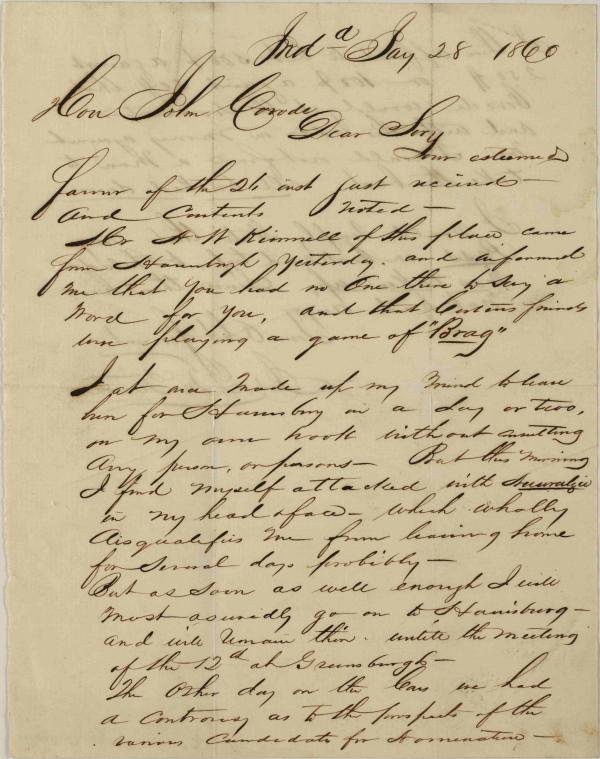 Ind^a Jay 28 1860
Hon John Covode
Dear Sory
Your esteemed
favour of the 26 inst just recievd —
and contents noted —
Mr A W Kimmell of this place came
from Harrisburgh Yesterday. and informed
me that you had no One there to Say a
Word for You, and that Curtins friends
were playing a game of "Brag"
I at once Made up my Mind to leave
here for Harrisburg in a day or two,
on my own hook without consulting
any person, or persons — But this Morning
I find Myself attacked with Neuralgia
in my head & face — which wholly
disqualifies me from leaving home
for Several days probibly —
But as Soon as well enough I will
Most asuredly go on to Harrisburg —
and will remain thire. untill the Meeting
of the 12^d at Greensburgh —
The Other day on the Cars we had
a controversy as to the prospects of the
various Candidates for Nomination —